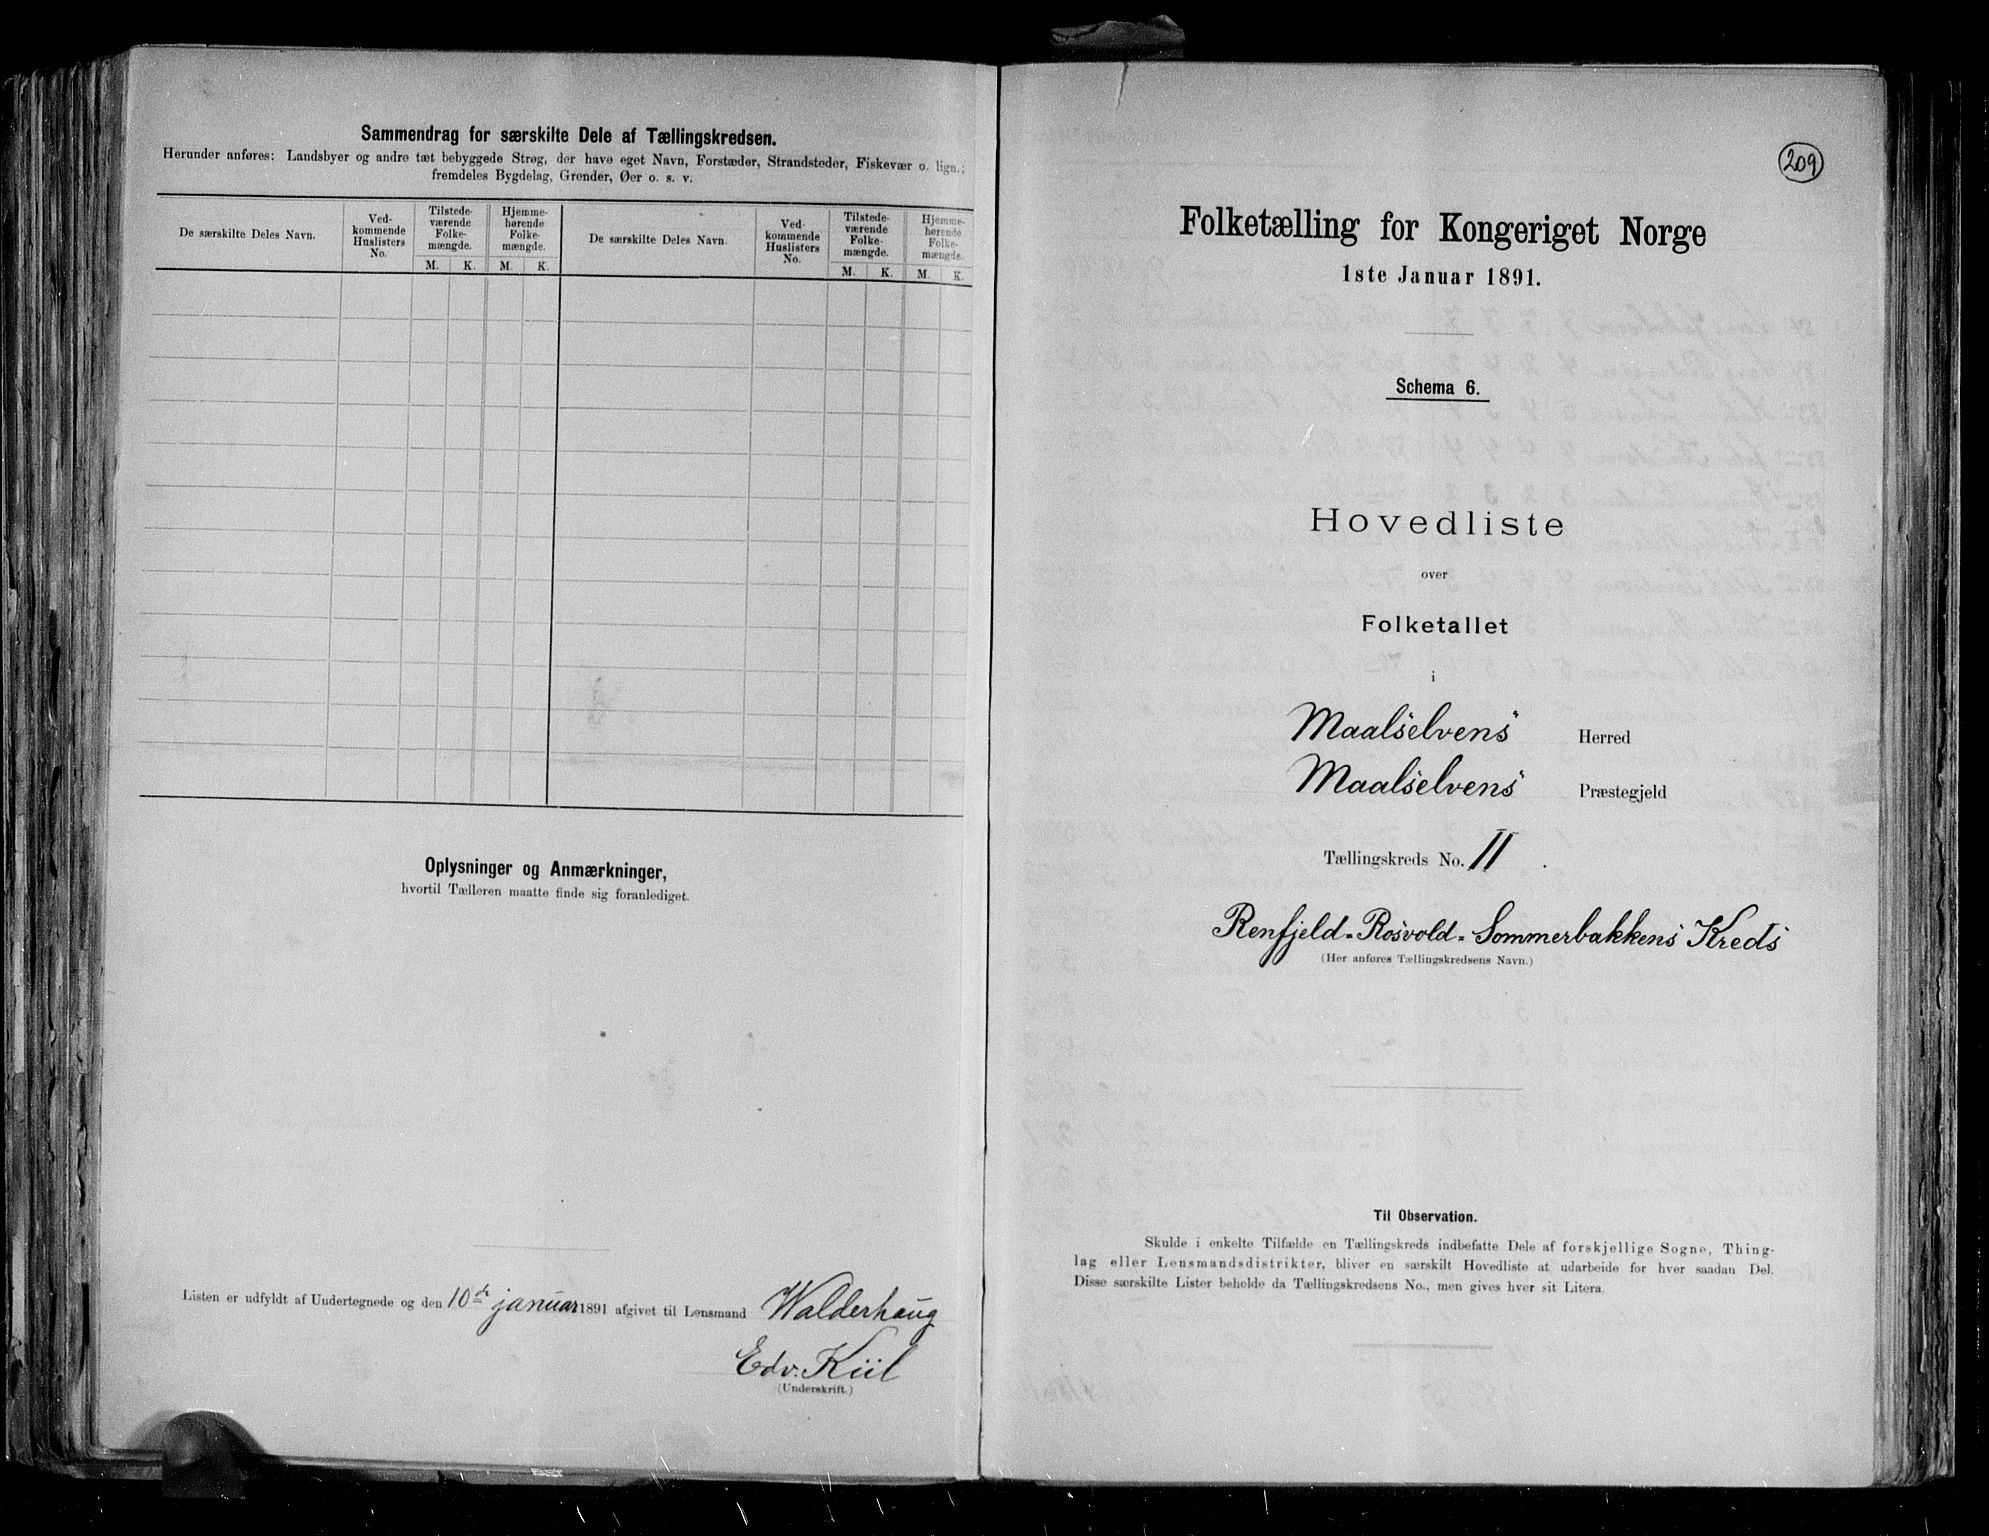 Sammendrag for særskilte Dele af Tællingskredsen.
Herunder anføres: Landsbyer og andre tæt bebyggede Strøg, der have eget Navn, Forstæder, Strandsteder, Fiskevær o. lign.;
fremdeles Bygdelag, Grender, Øer o. s. v.
De særskilte Deles Navn.
Ved-
kommende
Huslisters
No.
Tilstede-
værende
Folke-
mængde.
Hjemme-
hørende
Folke-
mængde.
M. K. M. K.
De særskilte Deles Navn.
Ved-
kommende
Huslisters
No.
Tilstede-
værende
Folke-
mængde.
Hjemme-
hørende
Folke-
mængde.
M. K. M. K.
Oplysninger og Anmærkninger,
hvortil Tælleren maatte finde sig foranlediget.
Listen er udfyldt af Undertegnede og den 10de januar 1891 afgivet til Lensmand Walderhaug
Edv. Kiil
(Underskrift.)
209
Folketælling for Kongeriget Norge
1ste Januar 1891.
Schema 6.
Hovedliste
over
Folketallet
i
Maalselvens Herred
Maalselvens Præstegjeld
Tællingskreds No. 11.
Renfjeld-Rosvold-Sommerbakkens Kreds
(Her anføres Tællingskredsens Navn.)
Til Observation.
Skulde i enkelte Tilfælde en Tællingskreds indbefatte Dele af forskjellige Sogne, Thing-
lag eller Lensmandsdistrikter, bliver en særskilt Hovedliste at udarbeide for hver saadan Del.
Disse særskilte Lister beholde da Tællingskredsens No., men gives hver sit Litera.